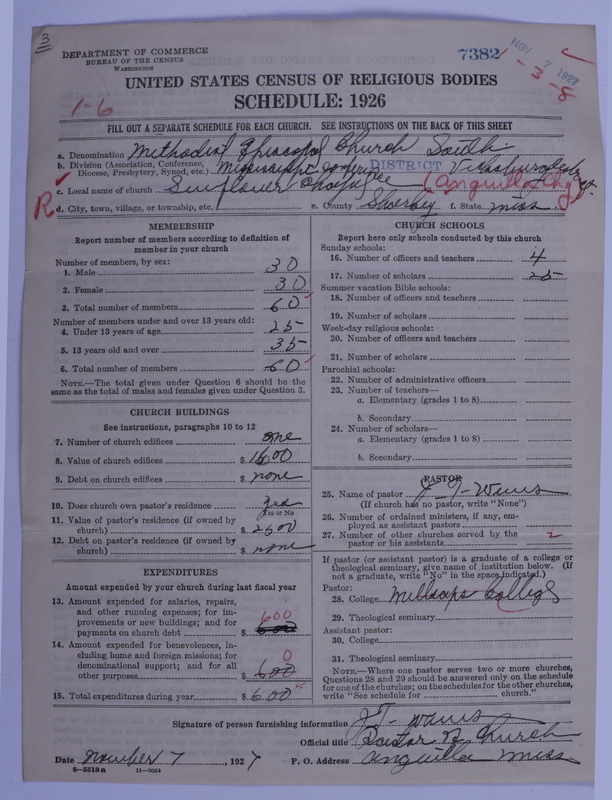 3
DEPARTMENT OF COMMERCE
BUREAU OF THE CENSUS
WASHINGTON
7382
NOV 7 1927
-3-8
UNITED STATES CENSUS OF RELIGIOUS BODIES
SCHEDULE: 1926
1-6
FILL OUT A SEPARATE SCHEDULE FOR EACH CHURCH. SEE INSTRUCTIONS ON THE BACK OF THIS SHEET
a. Denomination Methodist Episcopal Church South
b. Division (Association, Conference, Diocese, Presbytery, Synod, etc.) Mississippi Conference DISTRICT Vicksburg
c. Local name of church Sunflower Chapel (Anguilla Chg)
R
d. City, town, village, or township, etc. e. County Sharkey f. State Miss
MEMBERSHIP
Report number of members according to definition of member in your church
Number of members, by sex:
1. Male 30
2. Female 30
3. Total number of members 60
Number of members under and over 13 years old:
4. Under 13 years of age 25
5. 13 years old and over 35
6. Total number of members 60
NOTE.—The total given under Question 6 should be the same as the total of males and females given under Question 3.
CHURCH BUILDINGS
See instructions, paragraphs 10 to 12
7. Number of church edifices one
8. Value of church edifices $ 1600
9. Debt on church edifices $ none
10. Does church own pastor's residence yes
Yes or No
11. Value of pastor's residence (if owned by church) $ 2500
12. Debt on pastor's residence (if owned by church) $ none
EXPENDITURES
Amount expended by your church during last fiscal year
13. Amount expended for salaries, repairs, and other running expenses; for improvements or new buildings; and for payments on church debt $ 600
14. Amount expended for benevolences, including home and foreign missions; for denominational support; and for all other purposes $ 600 0
15. Total expenditures during year $ 600
CHURCH SCHOOLS
Report here only schools conducted by this church
Sunday schools:
16. Number of officers and teachers 4
17. Number of scholars 25
Summer vacation Bible schools:
18. Number of officers and teachers
19. Number of scholars
Week-day religious schools:
20. Number of officers and teachers
21. Number of scholars
Parochial schools:
22. Number of administrative officers
23. Number of teachers—
a. Elementary (grades 1 to 8)
b. Secondary
24. Number of scholars—
a. Elementary (grades 1 to 8)
b. Secondary
PASTOR
25. Name of pastor
(If church has no pastor, write "None")
26. Number of ordained ministers, if any, employed as assistant pastors
27. Number of other churches served by the pastor or his assistants 2
If pastor (or assistant pastor) is a graduate of a college or theological seminary, give name of institution below. (If not a graduate, write "No" in the space indicated.)
Pastor:
28. College Millsaps College
29. Theological seminary
Assistant pastor:
30. College
31. Theological seminary
NOTE.—Where one pastor serves two or more churches, Questions 28 and 29 should be answered only on the schedule for one of the churches; on the schedules for the other churches, write "See schedule for church."
Signature of person furnishing information
Official title Pastor of Church
Date November 7, 1927 P. O. Address Anguilla Miss
8-5518a 11-9034